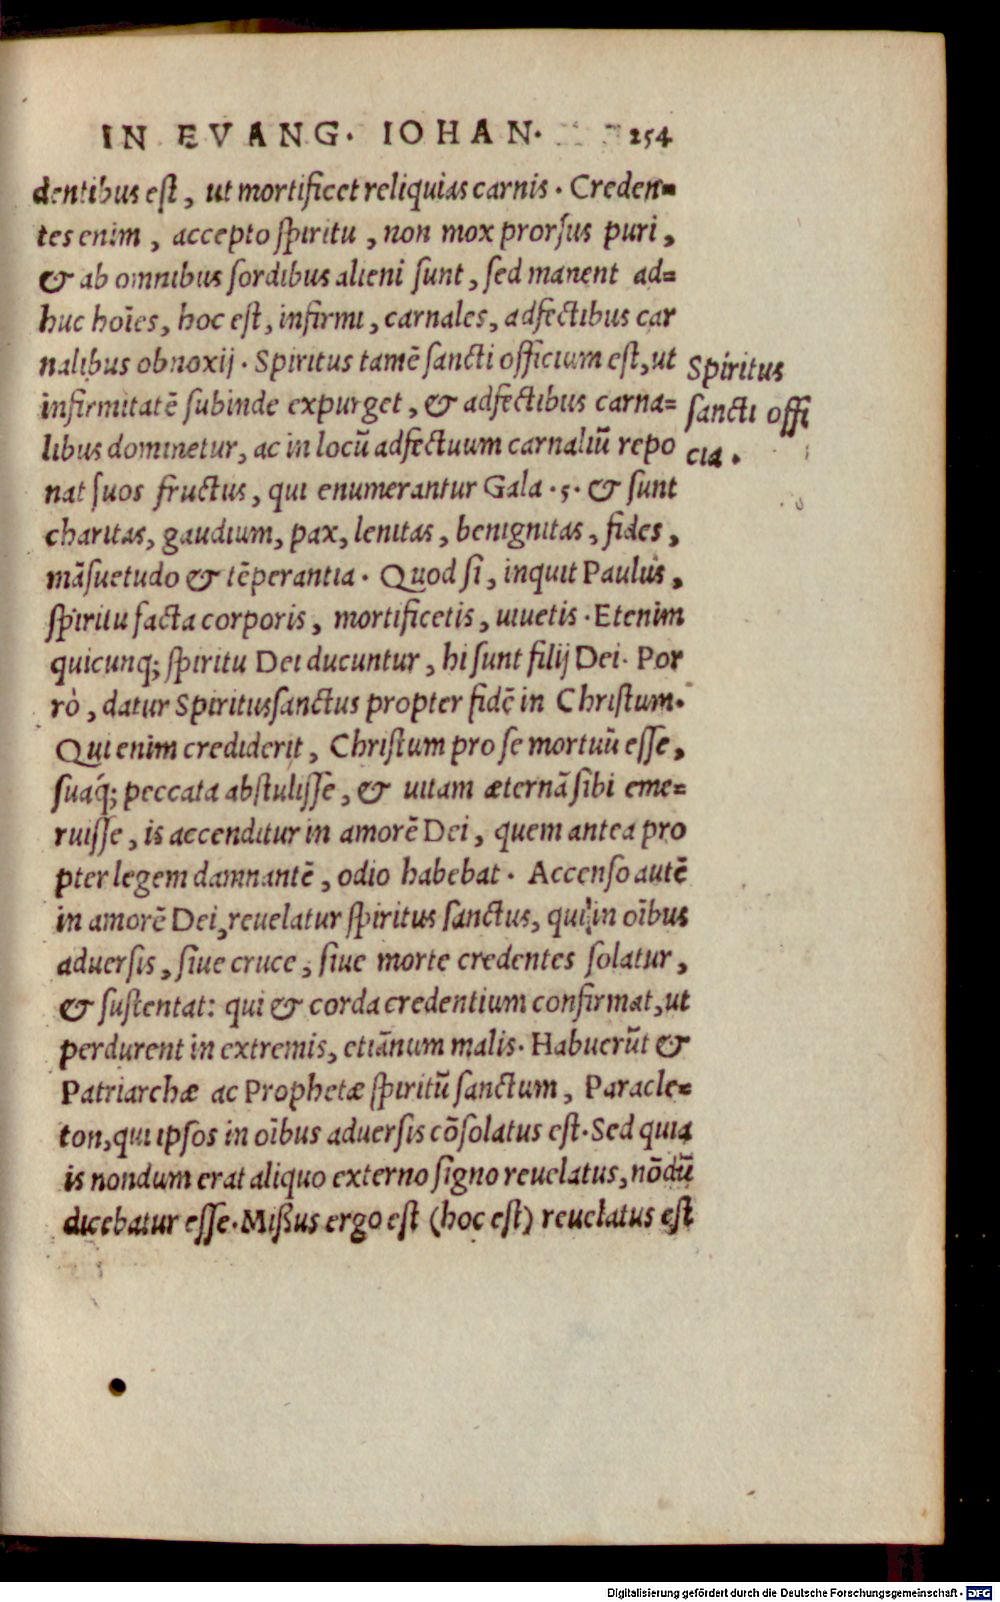 IN EVANG. IOHAN. 254
dentibus eſt, ut mortificet reliquias carnis. Creden=
tes enim, accepto ſpiritu, non mox prorſus puri,
& ab omnibus ſordibus alieni ſunt, ſed manent ad=
huc hoīes, hoc eſt, infirmi, carnales, adfectibus car
nalibus obnoxij. Spiritus tamē ſancti officium eſt, ut
infirmitatē ſubinde expurget, & adfectibus carna=
libus dominetur, ac in locū adfectuum carnaliū repo
nat ſuos fructus, qui enumerantur Gala. 5. & ſunt
charitas, gaudium, pax, lenitas, benignitas, fides,
māſuetudo & tēperantia. Quod ſi, inquit Paulus,
ſpiritu facta corporis, mortificetis, uiuetis. Etenim
quicunq; ſpiritu Dei ducuntur, hi ſunt filij Dei. Por
rò, datur Spiritusſanctus propter fidē in Chriſtum.
Qui enim crediderit, Chriſtum pro ſe mortuū eſſe,
ſuáq; peccata abſtuliſſe, & uitam æternā ſibi eme=
ruiſſe, is accenditur in amorē Dei, quem antea pro
pter legem damnantē, odio habebat. Accenſo autē
in amorē Dei, reuelatur ſpiritus ſanctus, qui in oībus
aduerſis, ſiue cruce, ſiue morte credentes ſolatur,
& ſuſtentat: qui & corda credentium confirmat, ut
perdurent in extremis, etiānum malis. Habuerūt &
Patriarchæ ac Prophetæ ſpiritū ſanctum, Paracle=
ton, qui ipſos in oībus aduerſis cōſolatus eſt. Sed quia
is nondum erat aliquo externo ſigno reuelatus, nōdū
dicebatur eſſe. Miſſus ergo eſt (hoc eſt) reuelatus eſt
Spiritus
ſancti offi
cia.
Digitalisierung gefördert durch die Deutsche Forschungsgemeinschaft - DFG